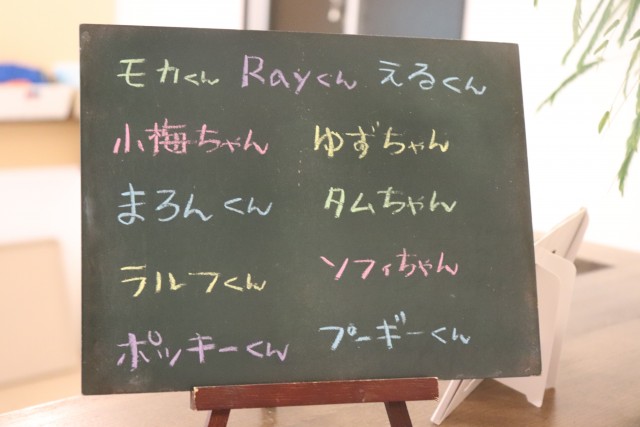 モカくん Rayくん えるくん
小梅ちゃん ゆずちゃん
まろんくん タムちゃん
ラルフくん ソフィちゃん
ポッキーくん プーギーくん